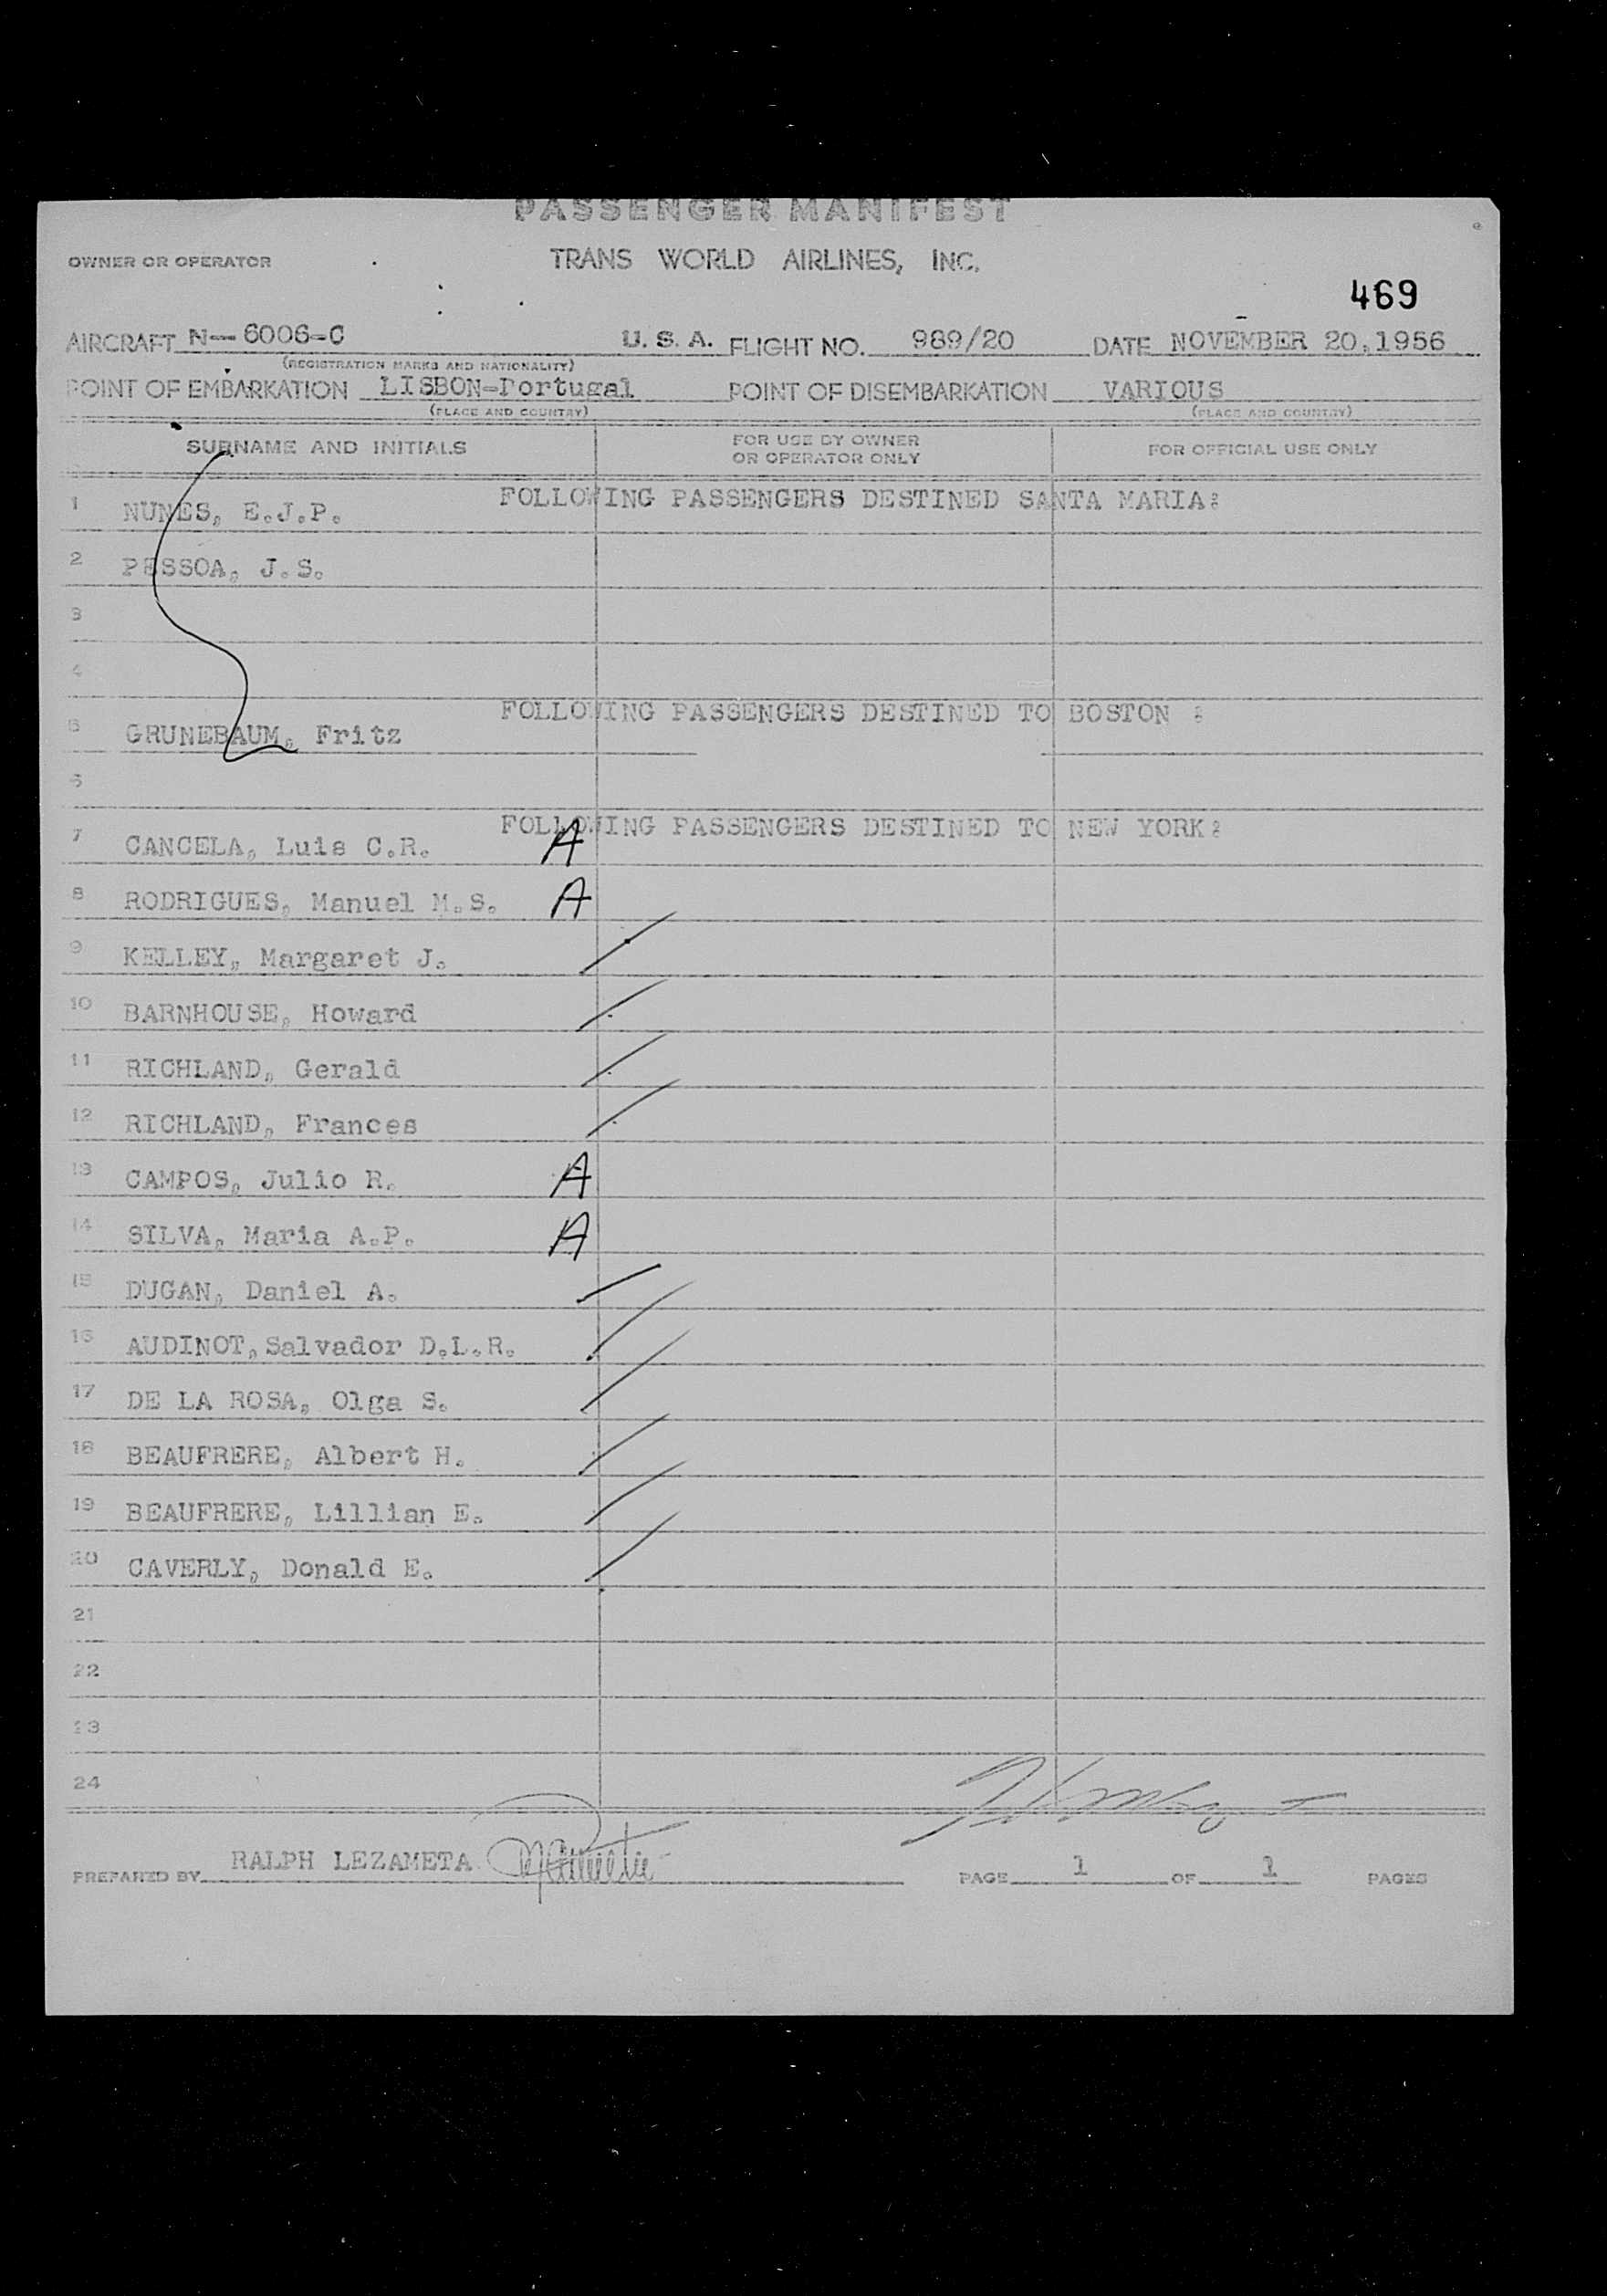 PASSENGER MANIFEST
OWNER OR OPERATOR TRANS WORLD AIRLINES, INC.
469
AIRCRAFT N-- 6006-C U. S. A. FLIGHT NO. 989/20 DATE NOVEMBER 20,1956
(REGISTRATION MARKS AND NATIONALITY)
POINT OF EMBARKATION LISBON-Portugal POINT OF DISEMBARKATION VARIOUS
(PLACE AND COUNTRY) (PLACE AND COUNTRY)
SURNAME AND INITIALS FOR USE BY OWNER OR OPERATOR ONLY FOR OFFICIAL USE ONLY
FOLLOWING PASSENGERS DESTINED SANTA MARIA:
1 NUNES, E.J.P.
2 PESSOA, J.S.
3
4
FOLLOWING PASSENGERS DESTINED TO BOSTON :
5 GRUNEBAUM, Fritz
6
FOLLOWING PASSENGERS DESTINED TO NEW YORK:
7 CANCELA, Luis C.R. A
8 RODRIGUES, Manuel M.S. A
9 KELLEY, Margaret J. /
10 BARNHOUSE, Howard /
11 RICHLAND, Gerald /
12 RICHLAND, Frances /
13 CAMPOS, Julio R. A
14 SILVA, Maria A.P. A
15 DUGAN, Daniel A. /
16 AUDINOT,Salvador D.L.R. /
17 DE LA ROSA, Olga S. /
18 BEAUFRERE, Albert H. /
19 BEAUFRERE, Lillian E. /
20 CAVERLY, Donald E. /
21
22
23
24
PREPARED BY RALPH LEZAMETA PAGE 1 OF 1 PAGES